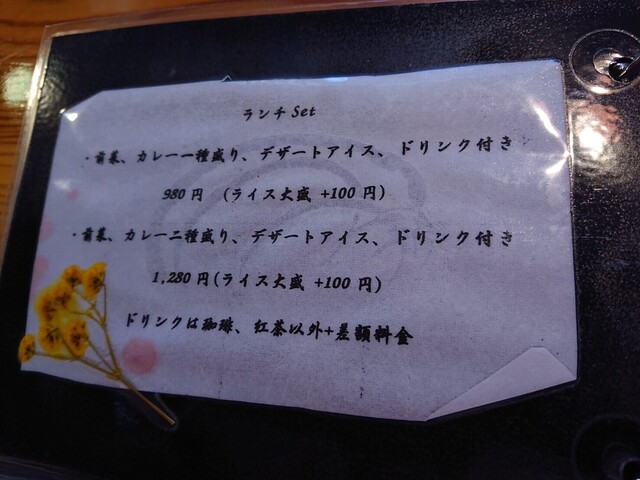 ランチ Set
・前菜、カレー一種盛り、デザートアイス、ドリンク付き
980 円 （ライス大盛 +100 円）
・前菜、カレー二種盛り、デザートアイス、ドリンク付き
1,280 円（ライス大盛 +100 円）
ドリンクは珈琲、紅茶以外+差額料金